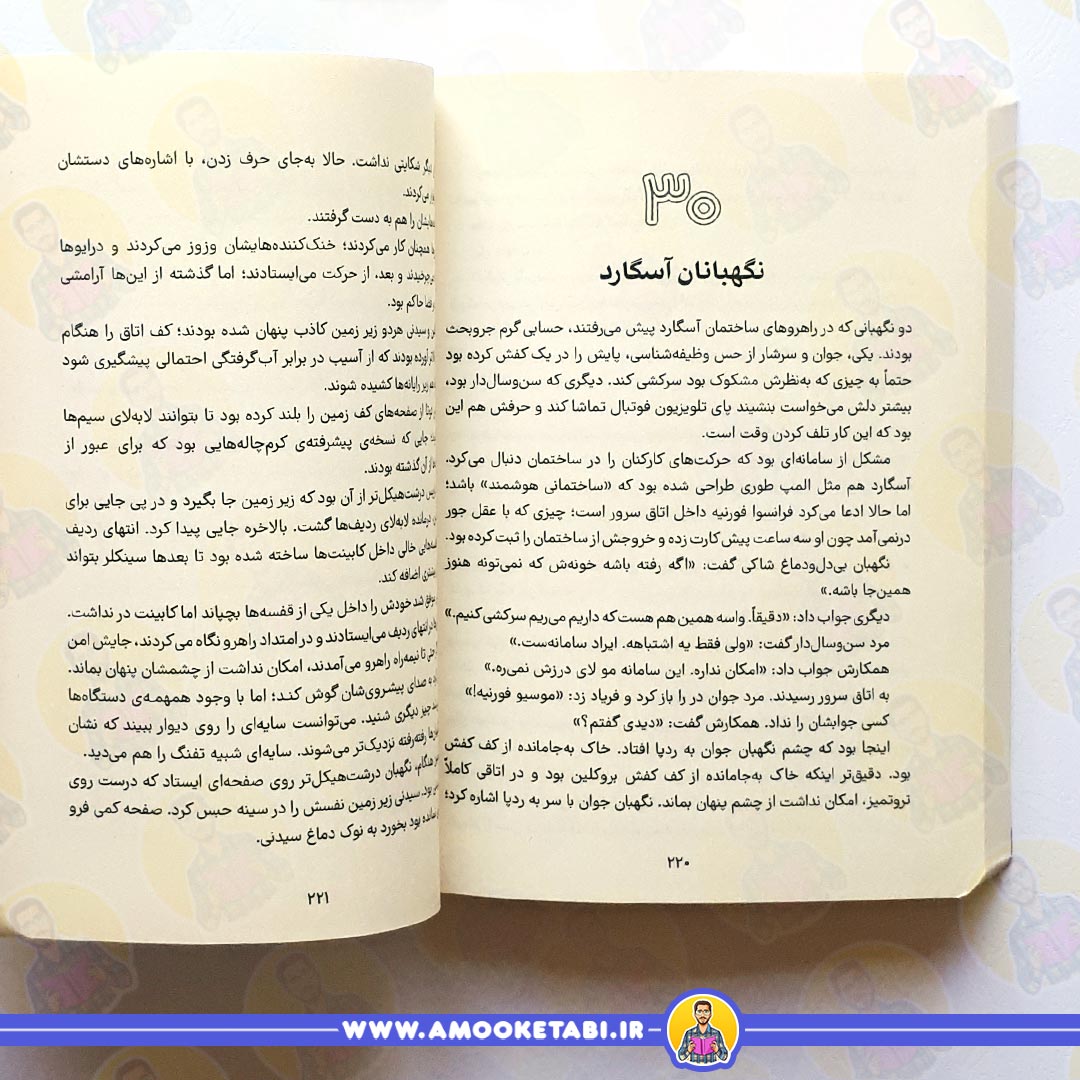 ۳۰
نگهبانان آسگارد
دو نگهبانی که در راهروهای ساختمان آسگارد پیش می‌رفتند، حسابی گرم جروبحث
بودند. یکی، جوان و سرشار از حس وظیفه‌شناسی، پایش را در یک کفش کرده بود
حتماً به چیزی که به‌نظرش مشکوک بود سرکشی کند. دیگری که سن‌وسال‌دار بود،
بیشتر دلش می‌خواست بنشیند پای تلویزیون فوتبال تماشا کند و حرفش هم این
بود که این کار تلف کردن وقت است.
مشکل از سامانه‌ای بود که حرکت‌های کارکنان را در ساختمان دنبال می‌کرد.
آسگارد هم مثل المپ طوری طراحی شده بود که «ساختمانی هوشمند» باشد؛
اما حالا ادعا می‌کرد فرانسوا فورنیه داخل اتاق سرور است؛ چیزی که با عقل جور
درنمی‌آمد چون او سه ساعت پیش کارت زده و خروجش از ساختمان را ثبت کرده بود.
نگهبان بی‌دل‌ودماغ شاکی گفت: «اگه رفته باشه خونه‌ش که نمی‌تونه هنوز
همین‌جا باشه.»
دیگری جواب داد: «دقیقاً. واسه همین هم هست که داریم می‌ریم سرکشی کنیم.»
مرد سن‌وسال‌دار گفت: «ولی فقط یه اشتباهه. ایراد سامانه‌ست.»
همکارش جواب داد: «امکان نداره. این سامانه مو لای درزش نمی‌ره.»
به اتاق سرور رسیدند. مرد جوان در را باز کرد و فریاد زد: «موسیو فورنیه!»
کسی جوابشان را نداد. همکارش گفت: «دیدی گفتم؟»
اینجا بود که چشم نگهبان جوان به ردپا افتاد. خاک به‌جامانده از کف کفش
بود. دقیق‌تر اینکه خاک به‌جامانده از کف کفش بروکلین بود و در اتاقی کاملاً
تروتمیز، امکان نداشت از چشم پنهان بماند. نگهبان جوان با سر به ردپا اشاره کرد؛
۲۲۰
شکایتی نداشت. حالا به‌جای حرف زدن، با اشاره‌های دستشان
می‌کردند.
را هم به دست گرفتند.
همچنان کار می‌کردند؛ خنک‌کننده‌هایشان وزوز می‌کردند و درایوها
و بعد، از حرکت می‌ایستادند؛ اما گذشته از این‌ها آرامشی
حاکم بود.
و سیدنی هردو زیر زمین کاذب پنهان شده بودند؛ کف اتاق را هنگام
بودند که از آسیب در برابر آب‌گرفتگی احتمالی پیشگیری شود
زیر رایانه‌ها کشیده شوند.
از صفحه‌های کف زمین را بلند کرده بود تا بتوانند لابه‌لای سیم‌ها
جایی که نسخه‌ی پیشرفته‌ی کرم‌چاله‌هایی بود که برای عبور از
آن گذشته بودند.
درشت‌هیکل‌تر از آن بود که زیر زمین جا بگیرد و در پی جایی برای
درمانده لابه‌لای ردیف‌ها گشت. بالاخره جایی پیدا کرد. انتهای ردیف
خالی داخل کابینت‌ها ساخته شده بود تا بعدها سینکلر بتواند
اضافه کند.
شد خودش را داخل یکی از قفسه‌ها بچپاند اما کابینت در نداشت.
در انتهای ردیف می‌ایستادند و در امتداد راهرو نگاه می‌کردند، جایش امن
تا نیمه‌راه راهرو می‌آمدند، امکان نداشت از چشمشان پنهان بماند.
به صدای پیشروی‌شان گوش کند؛ اما با وجود همهمه‌ی دستگاه‌ها
چیز دیگری شنید. می‌توانست سایه‌ای را روی دیوار ببیند که نشان
رفته‌رفته نزدیک‌تر می‌شوند. سایه‌ای شبیه تفنگ را هم می‌دید.
هنگام، نگهبان درشت‌هیکل‌تر روی صفحه‌ای ایستاد که درست روی
بود. سیدنی زیر زمین نفسش را در سینه حبس کرد. صفحه کمی فرو
بود بخورد به نوک دماغ سیدنی.
۲۲۱
WWW.AMOOKETABI.IR